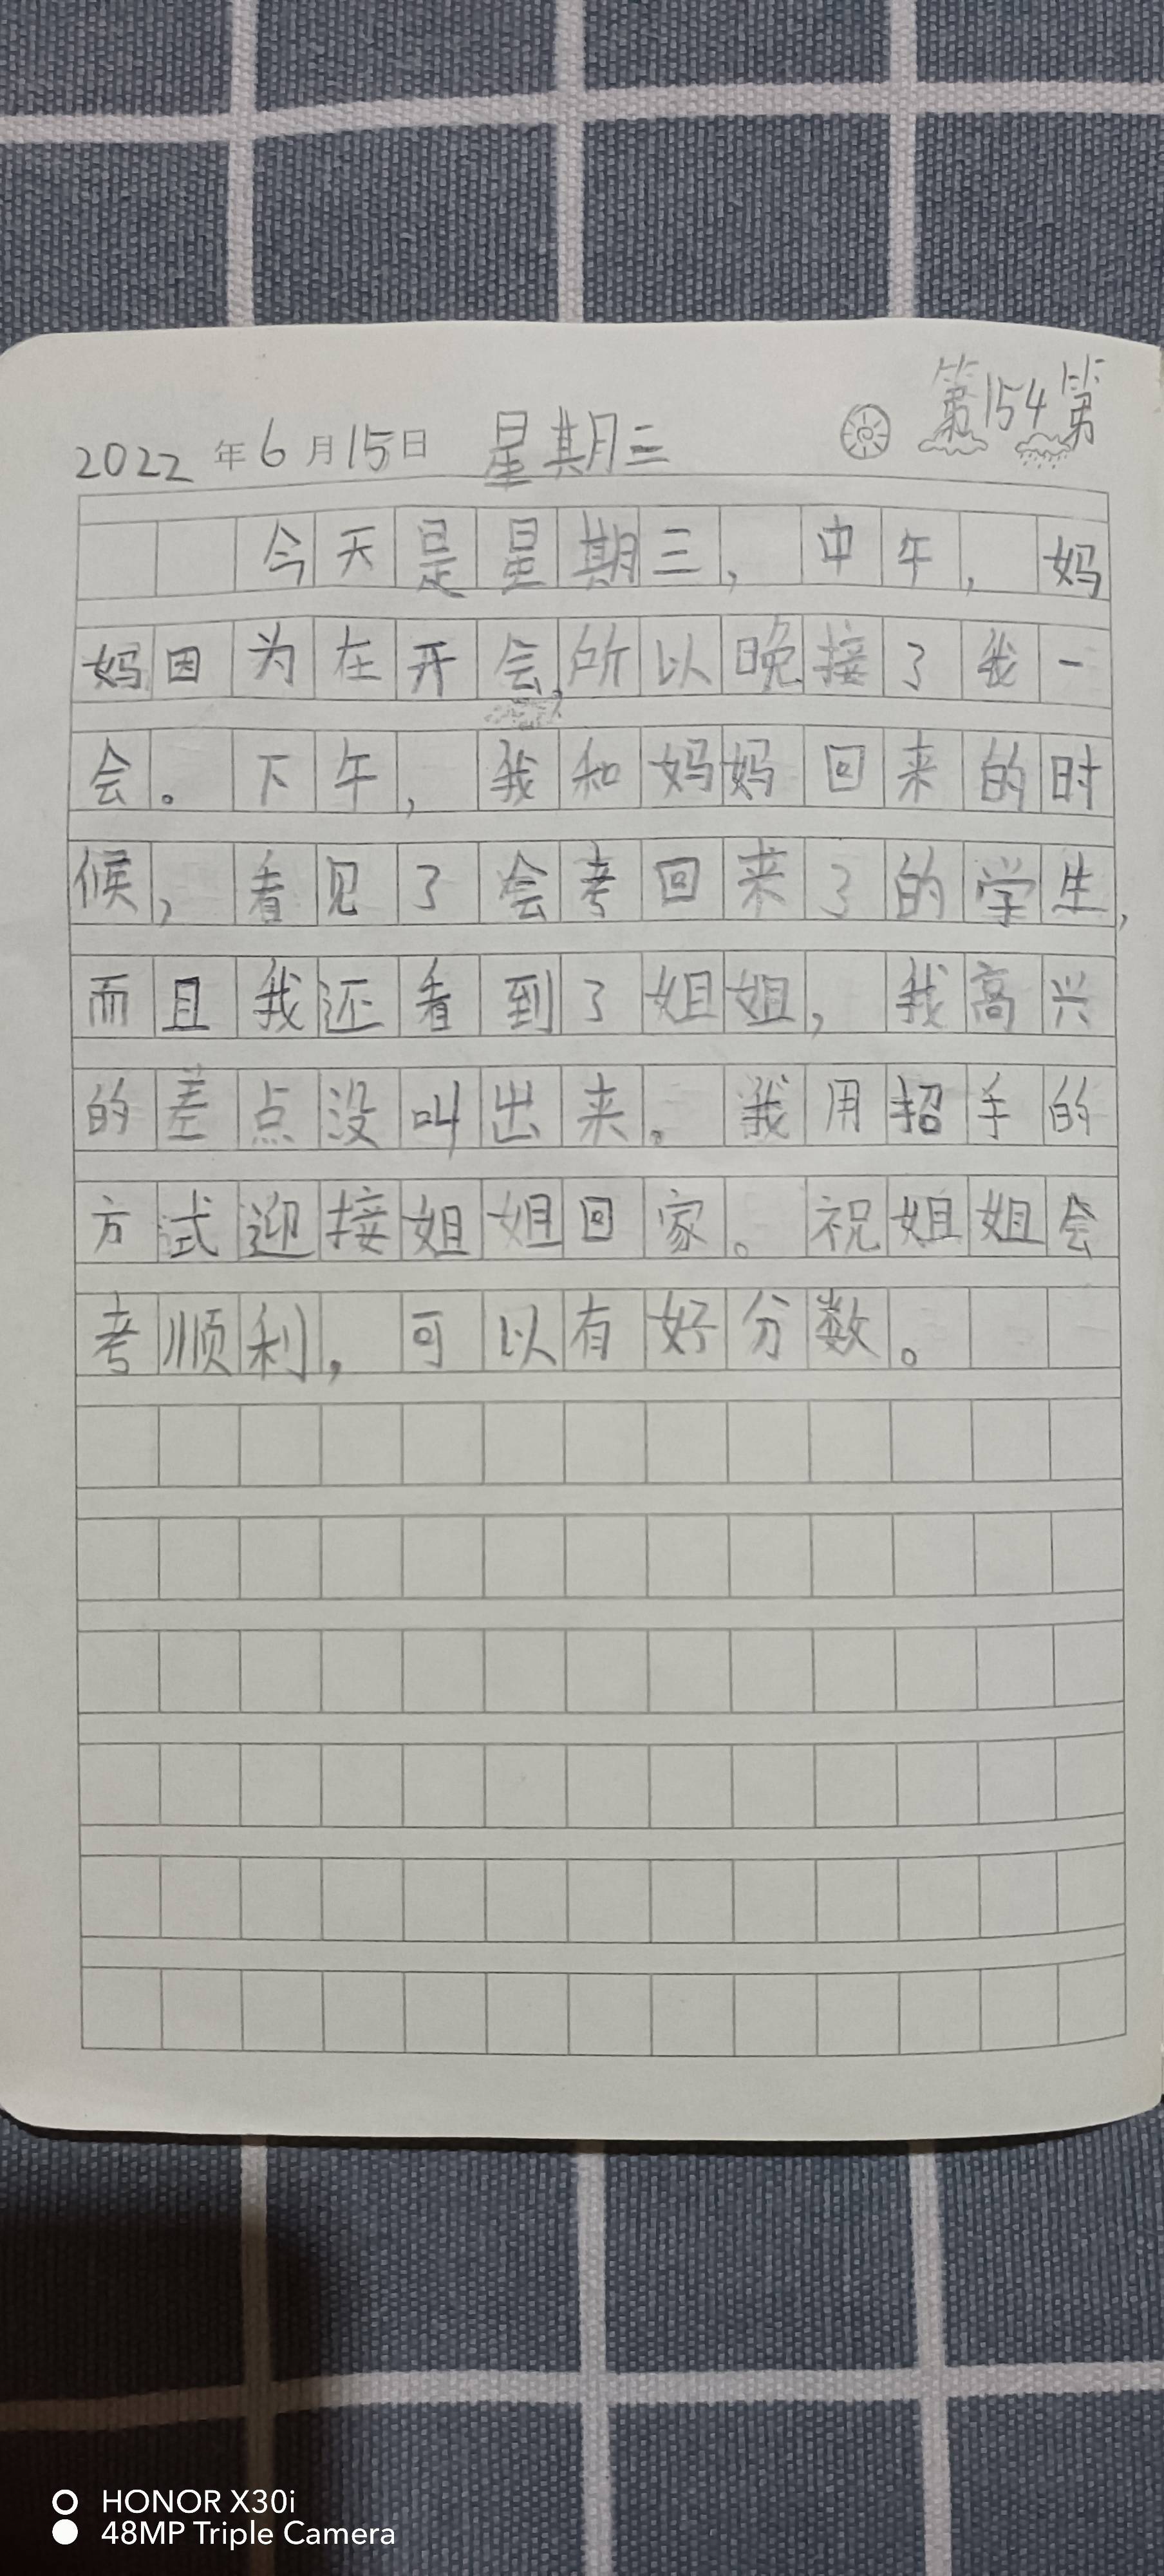 第154第
2022年6月15日 星期三
今天是星期三，中午，妈
妈因为在开会，所以晚接了我一
会。下午，我和妈妈回来的时
候，看见了会考回来了的学生，
而且我还看到了姐姐，我高兴
的差点没叫出来。我用招手的
方式迎接姐姐回家。祝姐姐会
考顺利，可以有好分数。
HONOR X30i
48MP Triple Camera